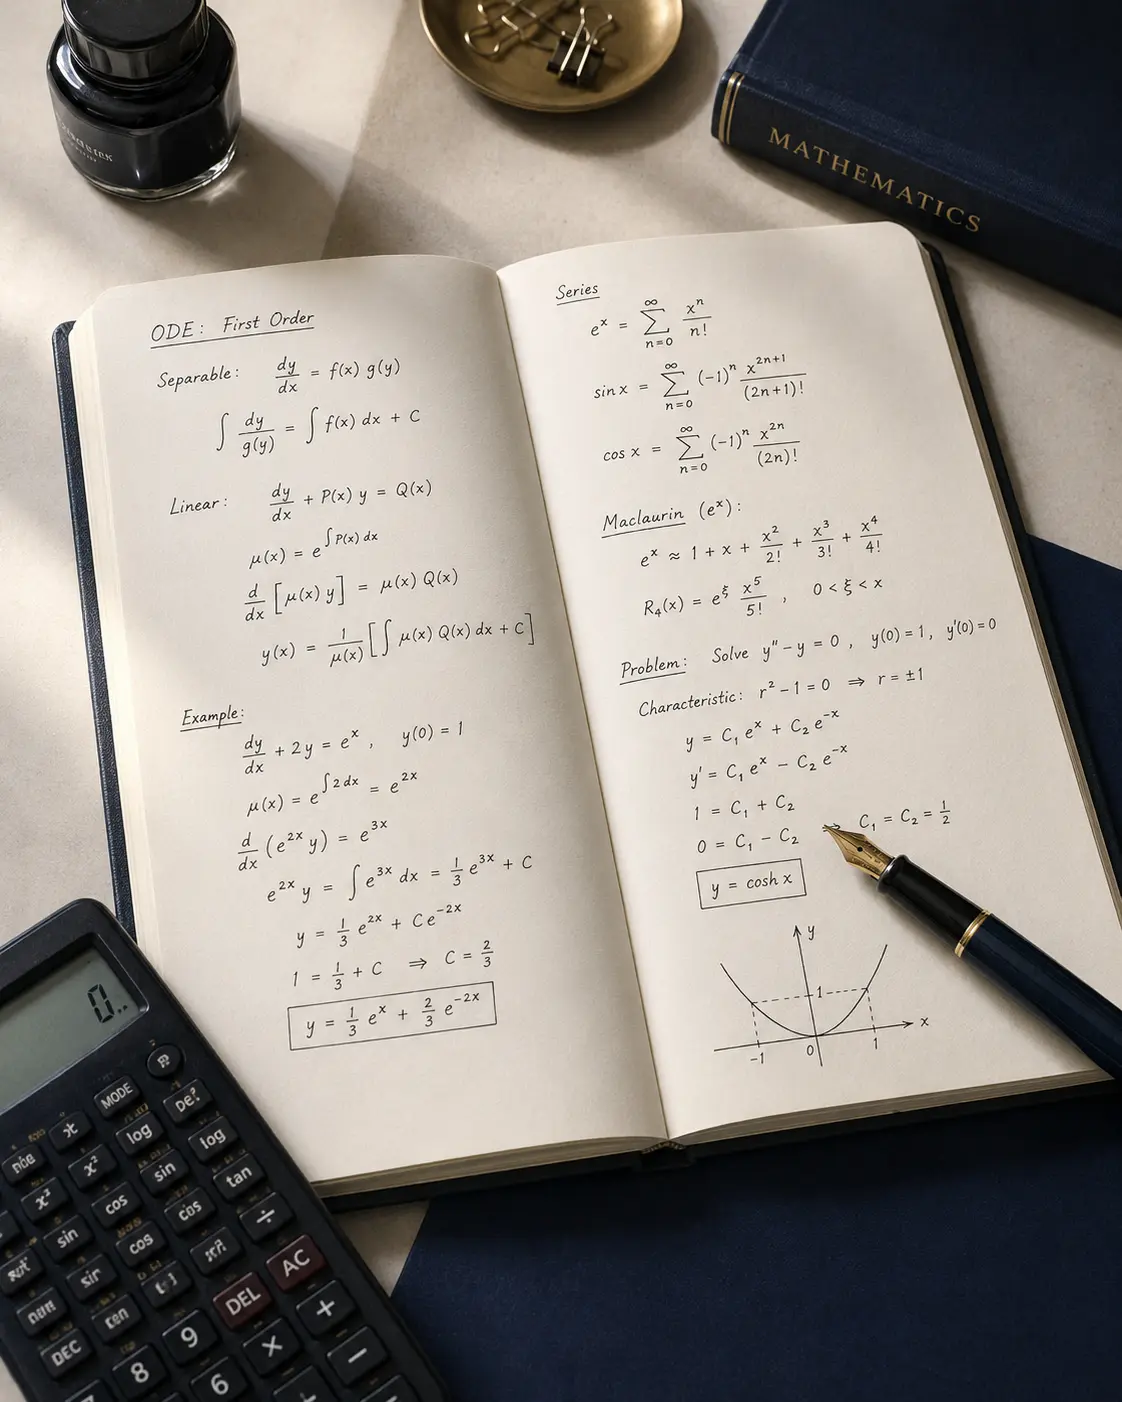 MATHEMATICS
ODE: First Order
Separable: dy/dx = f(x) g(y)
∫ dy/g(y) = ∫ f(x) dx + C
Linear: dy/dx + P(x) y = Q(x)
μ(x) = e^{∫P(x) dx}
d/dx [μ(x) y] = μ(x) Q(x)
y(x) = 1/μ(x) [∫ μ(x) Q(x) dx + C]
Example:
dy/dx + 2y = e^x , y(0) = 1
μ(x) = e^{∫2 dx} = e^{2x}
d/dx (e^{2x} y) = e^{3x}
e^{2x} y = ∫ e^{3x} dx = 1/3 e^{3x} + C
y = 1/3 e^{2x} + C e^{-2x}
1 = 1/3 + C ⇒ C = 2/3
y = 1/3 e^x + 2/3 e^{-2x}
Series
e^x = ∑_{n=0}^{∞} x^n/n!
sin x = ∑_{n=0}^{∞} (-1)^n x^{2n+1}/(2n+1)!
cos x = ∑_{n=0}^{∞} (-1)^n x^{2n}/(2n)!
Maclaurin (e^x):
e^x ≈ 1 + x + x^2/2! + x^3/3! + x^4/4!
R_4(x) = e^ξ x^5/5! , 0 < ξ < x
Problem: Solve y'' - y = 0 , y(0) = 1, y'(0) = 0
Characteristic: r^2 - 1 = 0 ⇒ r = ±1
y = C_1 e^x + C_2 e^{-x}
y' = C_1 e^x - C_2 e^{-x}
1 = C_1 + C_2
0 = C_1 - C_2 C_1 = C_2 = 1/2
y = cosh x
y
1
x
-1 0 1
0..
MODE
De?
log log
x² x² sin tan
cos cos ÷
sin cos
sin
AC
DEL +
DEC 9 × −
8 6